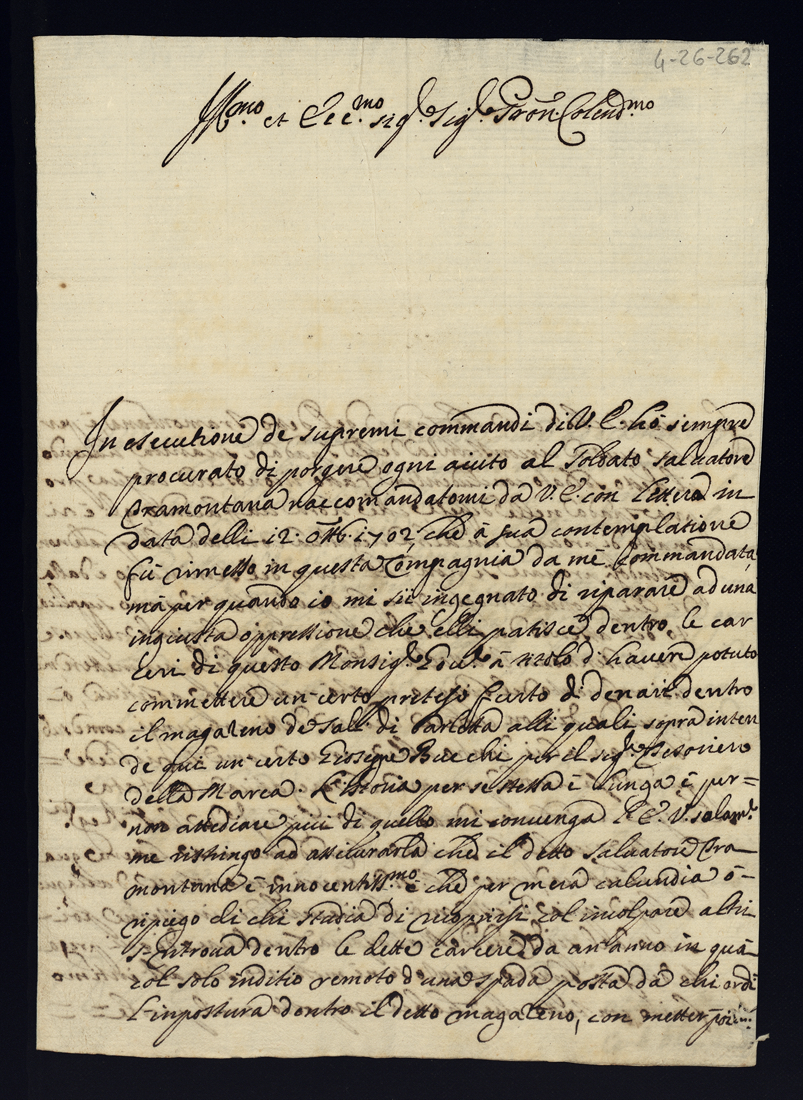 4-26-262
Ill.mo et Ecc.mo Sig.r Sig.r Pron. Colend.mo
In esecutione de supremi commandi di V. E. hò sempre
procurato di porgere ogni aiuto al Soldato Salvatore
Tramontana raccomandatomi da V. E. con lettera in
data delli 12. 8tt. 1702 che à sua contemplatione
fù rimesso in questa Compagnia da me commandata,
mà per quando io mi sii ingegnato di riparare ad una
ingiusta oppressione che elli patisce dentro le car
ceri di questo Monsig.r à titolo d'havere potuto
commettere un certo preteso furto di denari dentro
il magazeno de Sali di alli quali sopra inten
de qui un certo Gioseppe Bucchi per il sig.r Tesoriero
della Marca. L'istoria per se stessa è lunga è per=
non attediare più di quello mi convenga l'E. V. solam.te
me ristringo ad assicurarla che il detto Salvatore Tra
montana è innocentiss.mo è che per mera calunnia ò
ripiego di chi studia di ricoprirsi col incolpare altri
si ritrova dentro le dette carcere da un anno in quà
col solo inditio remoto d'una spada posta da chi ordì
l'inpostura dentro il detto magazeno, con metter